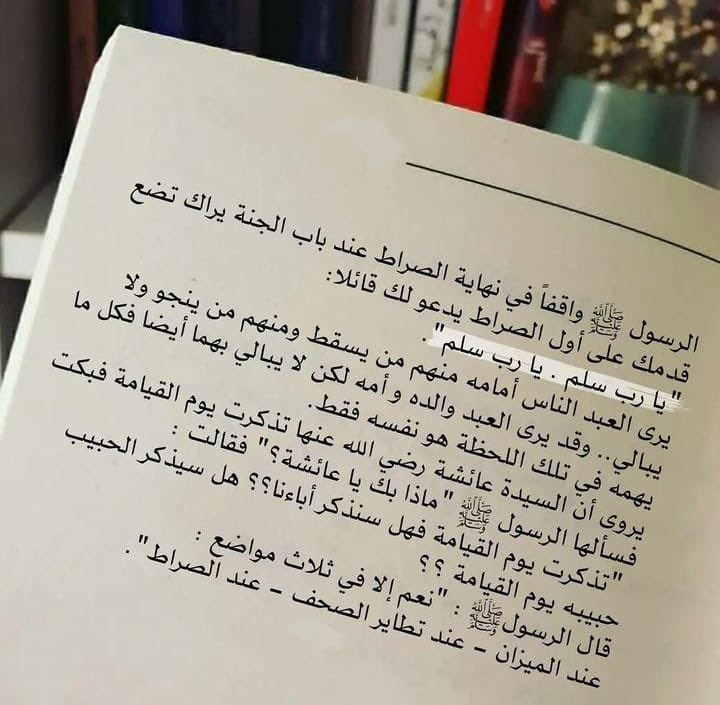 الرسول ﷺ واقفاً في نهاية الصراط عند باب الجنة يراك تضع
قدمك على أول الصراط يدعو لك قائلا:
"يا رب سلم . يا رب سلم".
يرى العبد الناس أمامه منهم من يسقط ومنهم من ينجو ولا
يبالي.. وقد يرى العبد والده و أمه لكن لا يبالي بهما أيضا فكل ما
يهمه في تلك اللحظة هو نفسه فقط.
يروى أن السيدة عائشة رضي الله عنها تذكرت يوم القيامة فبكت
فسألها الرسول ﷺ "ماذا بك يا عائشة؟" فقالت :
"تذكرت يوم القيامة فهل سنذكر أباءنا؟؟ هل سيذكر الحبيب
حبيبه يوم القيامة ؟؟
قال الرسول ﷺ : "نعم إلا في ثلاث مواضع :
عند الميزان - عند تطاير الصحف - عند الصراط" .